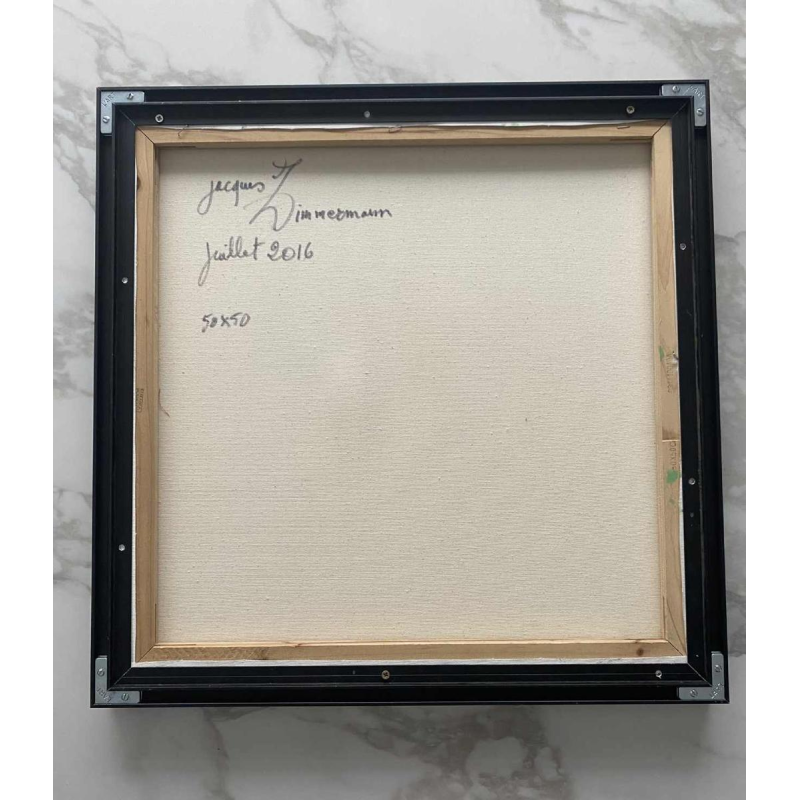 Jacques Zimmermann
Juillet 2016
50x50